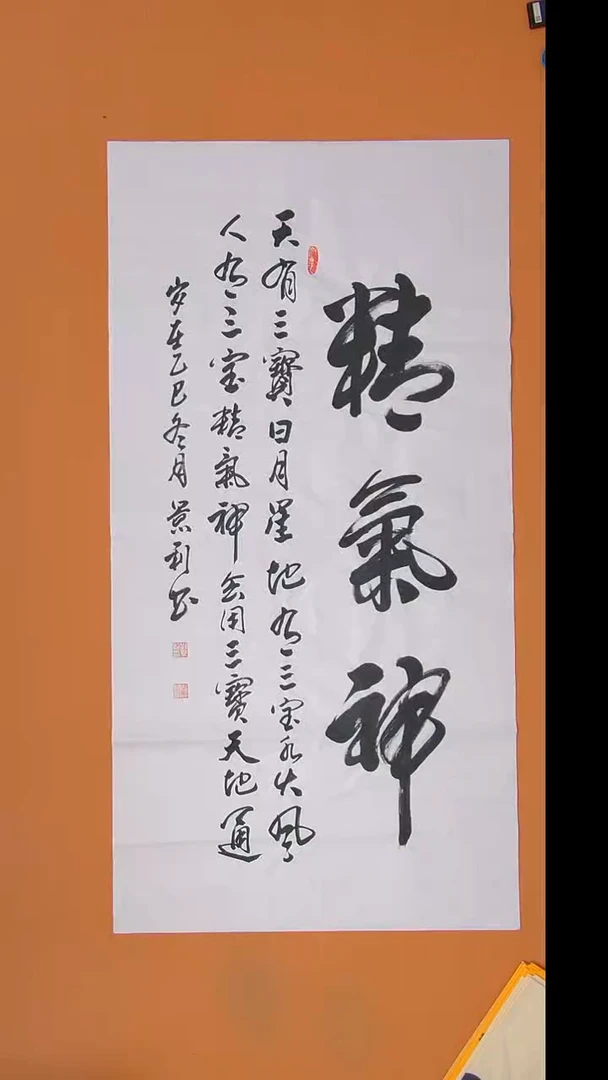 精氣神
天有三寶日月星地有三宝水火風
人有三宝精氣神善用三寶天地通
岁在乙巳冬月景利书